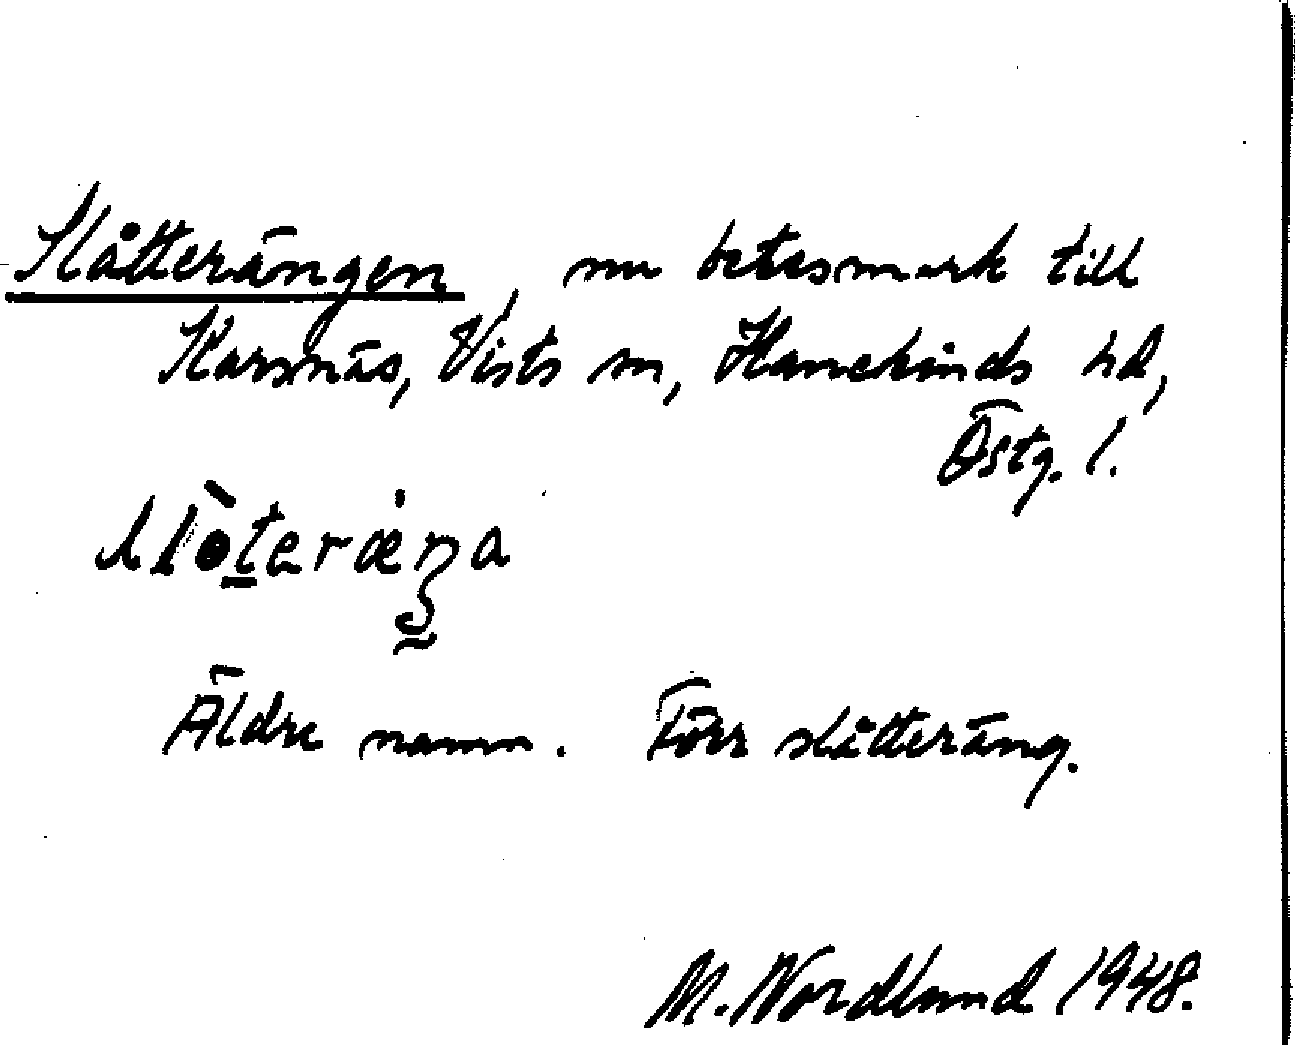 Slåtterängen, nu betesmark till
Karsnäs, Vists sn, Hanekinds hd,
Östg. l.
Äldre namn. Förr slåtteräng.
M. Nordlund 1948.